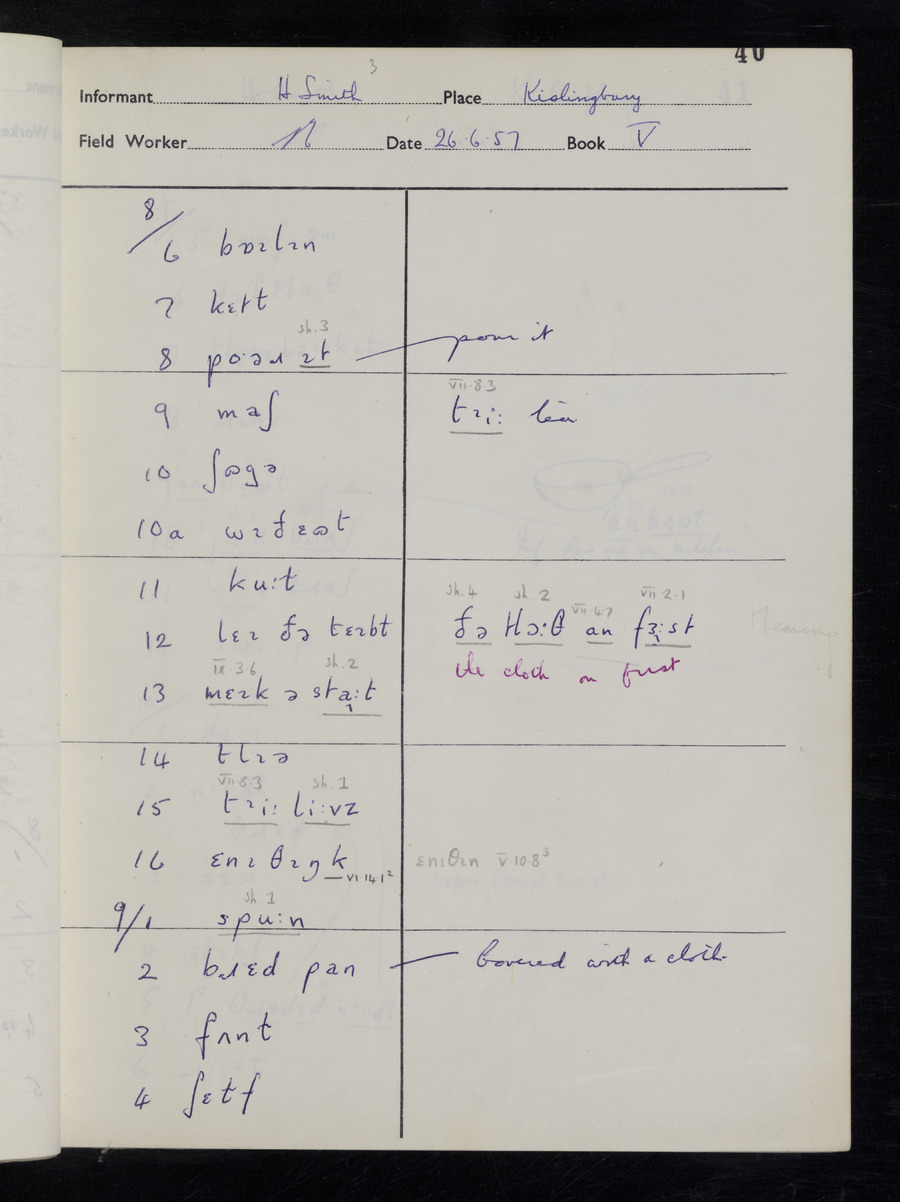 40
3
Informant H Smith Place Kislingbury
Field Worker Date 26·6·57 Book V
8/
6 bɒɪlɪn
7 kɛtɫ
sh.3
8 pɔ·əɹ ɪt — pour it
VII·8·3
9 maʃ tɹi: tea
10 ʃɷgə
10a wɪðɛɷt
11 ku:t
sh.4 sh.2 VII·4·7 VII·2·1
12 lɛɪ ðə tɛɪbɫ ðə tlɔ:θ an fɜ:st
the cloth on first
Meaning
IX·3·6 sh.2
13 mɛɪk ə sta:t
14 tlɪə
VII·8·3 sh.1
15 tɹi: li:vz
16 ɛnɪθɪŋk VI·14·1² ɛnɪθɪn V·10·8³
sh.1
9/1 spu:n
2 bɹɛd pan — Covered with a cloth
3 fɹʌnt
4 ʃɛɫf